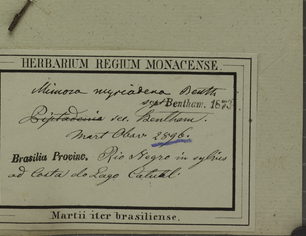 HERBARIUM REGIUM MONACENSE.
Mimosa myriadena Benth
sept Bentham. 1873
Piptadenia sec. Bentham.
Mart Obsv 2896.
Brasilia Provinc. Rio Negro in sylvis
ad Costa do Lago
Martii iter brasiliense.